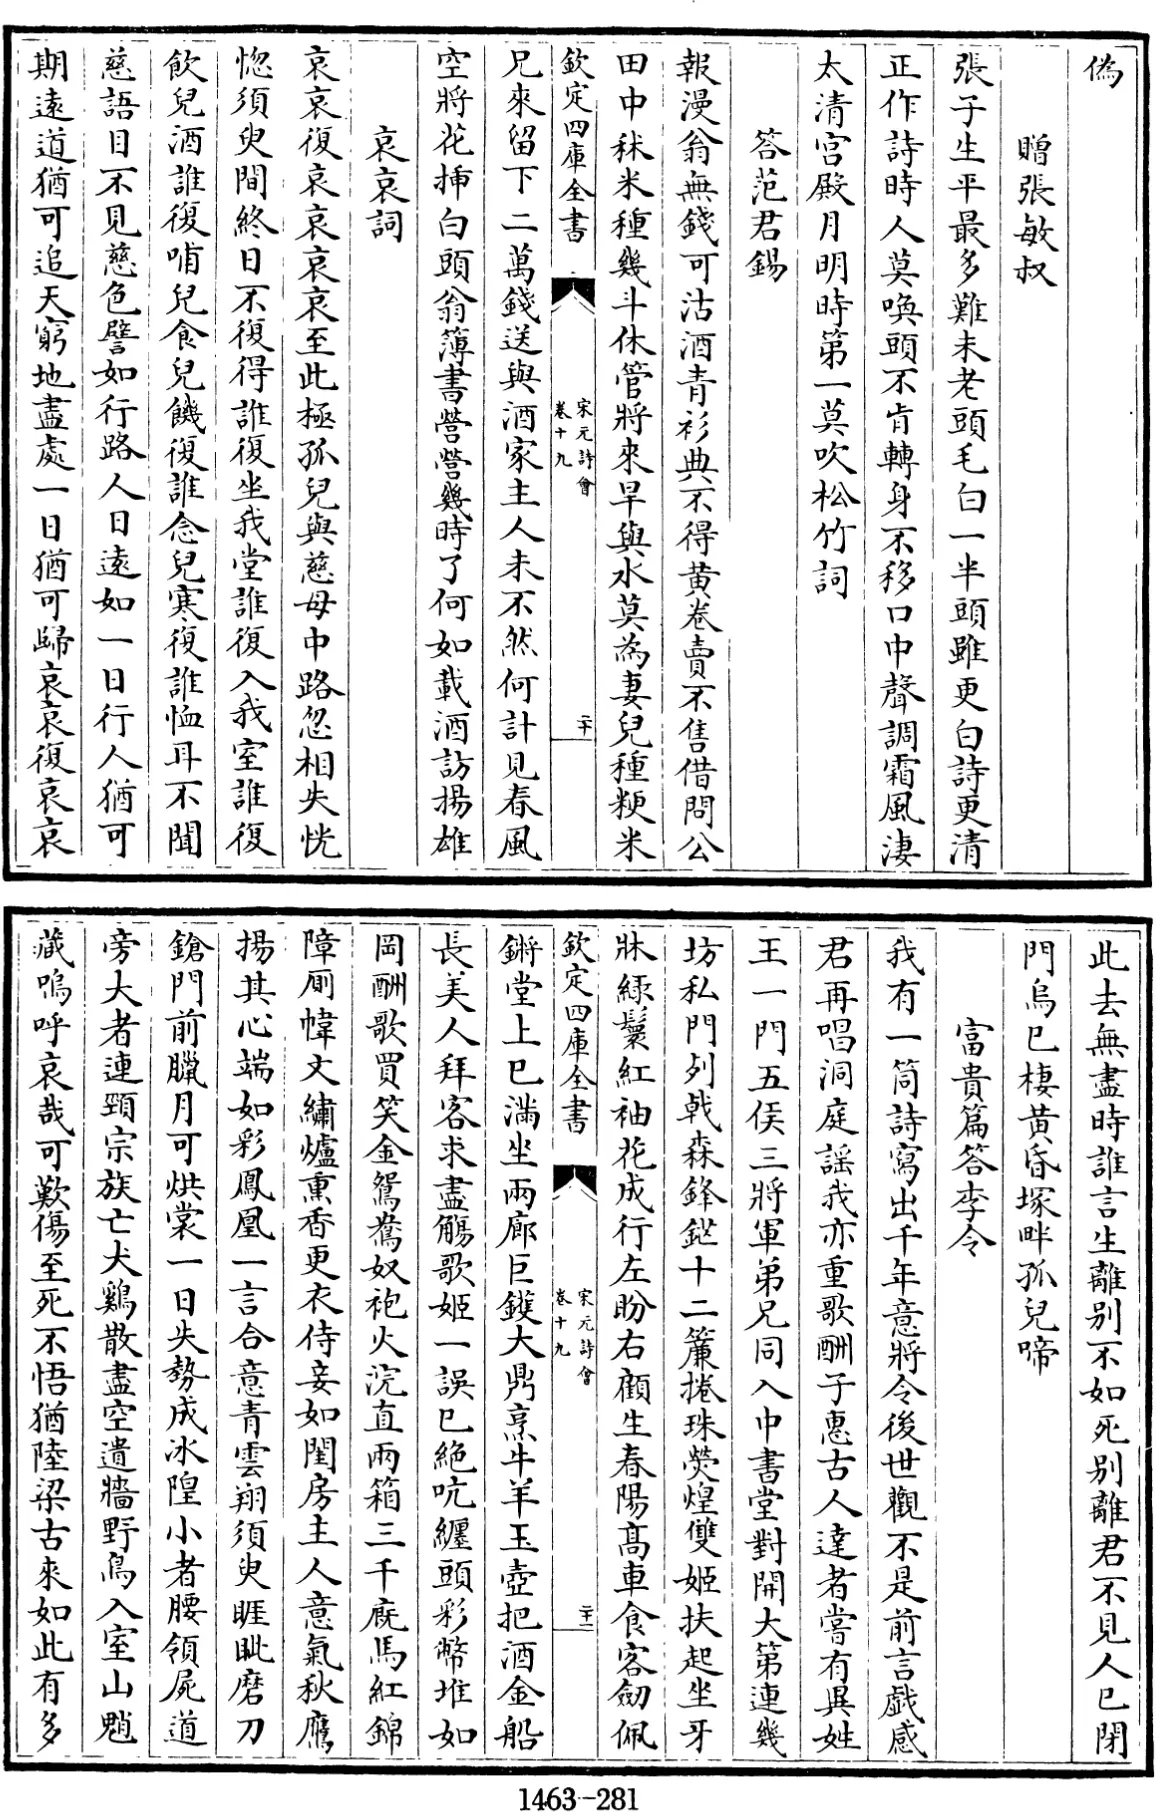 偽
贈張敏叔
張子生平最多難未老頭毛白一半頭雖更白詩更清
正作詩時人莫喚頭不肯轉身不移口中聲調霜風淒
太清宫殿月明時第一莫吹松竹詞
答范君錫
報漫翁無錢可沽酒青衫典不得黄卷賣不售借問公
田中秫米種幾斗休管將來旱與水莫為妻兒種粳米
欽定四庫全書
宋元詩會
卷十九
二十
兄來留下二萬錢送與酒家主人未不然何計見春風
空將花揷白頭翁簿書營營幾時了何如載酒訪揚雄
哀哀詞
哀哀復哀哀哀哀至此極孤兒與慈母中路忽相失恍
惚須臾間終日不復得誰復坐我堂誰復入我室誰復
飲兒酒誰復哺兒食兒饑復誰念兒寒復誰恤耳不聞
慈語目不見慈色譬如行路人日遠如一日行人猶可
期遠道猶可追天窮地盡處一日猶可歸哀哀復哀哀
此去無盡時誰言生離别不如死别離君不見人已閉
門烏已棲黄昏塚畔孤兒啼
富貴篇答李令
我有一筒詩寫出千年意將令後世觀不是前言戲感
君再唱洞庭謡我亦重歌酬子惠古人達者嘗有異姓
王一門五侯三將軍弟兄同入中書堂對開大第連幾
坊私門列戟森鋒鋩十二簾捲珠熒煌雙姬扶起坐牙
牀緑鬟紅袖花成行左盼右顧生春陽髙車食客劒佩
欽定四庫全書
宋元詩會
卷十九
二十一
鏘堂上已滿坐兩廊巨鑊大鼎烹牛羊玉壺把酒金船
長美人拜客求盡觴歌姬一誤已絶吭纏頭彩幣堆如
岡酬歌買笑金鴛鴦奴袍火浣直兩箱三千廐馬紅錦
障厠幃文繡爐熏香更衣侍妾如閨房主人意氣秋鷹
揚其心端如彩鳳凰一言合意青雲翔須臾睚眦磨刀
鎗門前臘月可烘裳一日失勢成冰隍小者腰領屍道
旁大者連頸宗族亡犬鷄散盡空遺牆野鳥入室山魈
藏嗚呼哀哉可歎傷至死不悟猶陸梁古來如此有多
1463-281